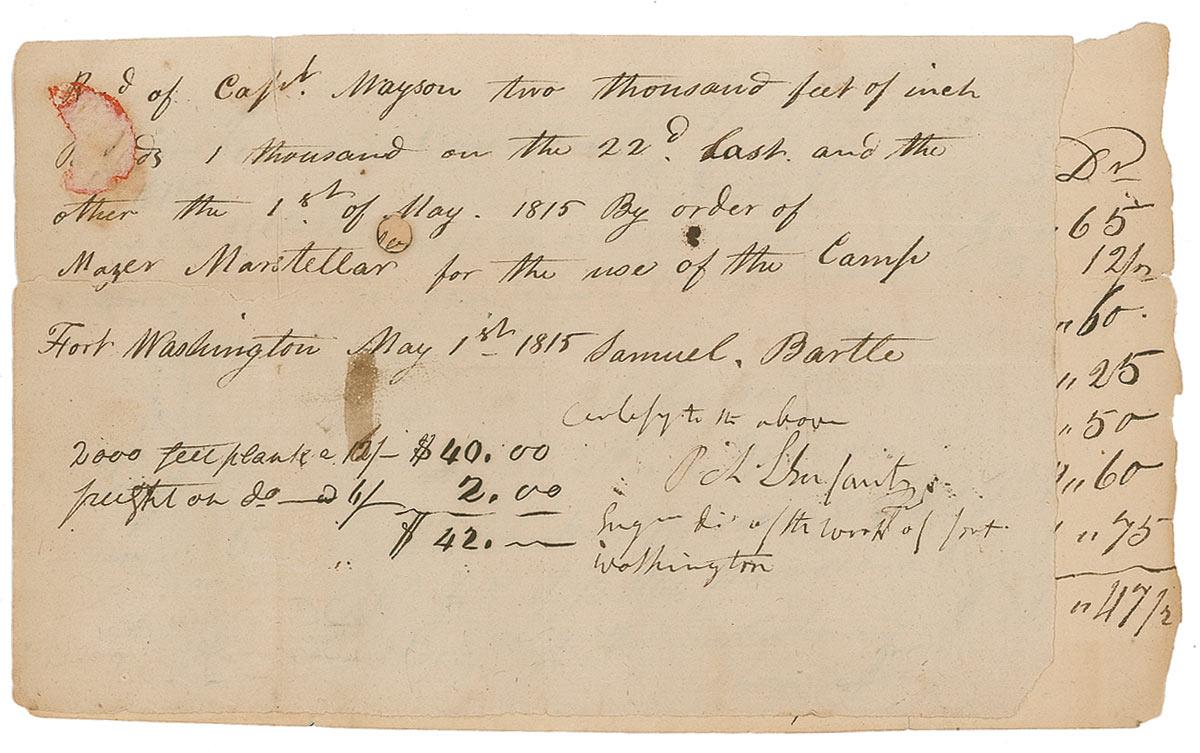 of Capt. Mayson two thousand feet of inch
ds 1 thousand on the 22d. last. and the
other the 1st of May. 1815 By order of
Mazer Marstellar for the use of the Camp
Fort Washington May 1st 1815 Samuel. Bartle
Certify to the above
2000 feet plank @ 12/– $40.00
P Ch L'Enfant
freight on do — @ 6/ 2.00
$42.—
Engr dir of the work of fort
washington
Dr
65
12/
"60.
"25
"50
"60
"75
"47/2